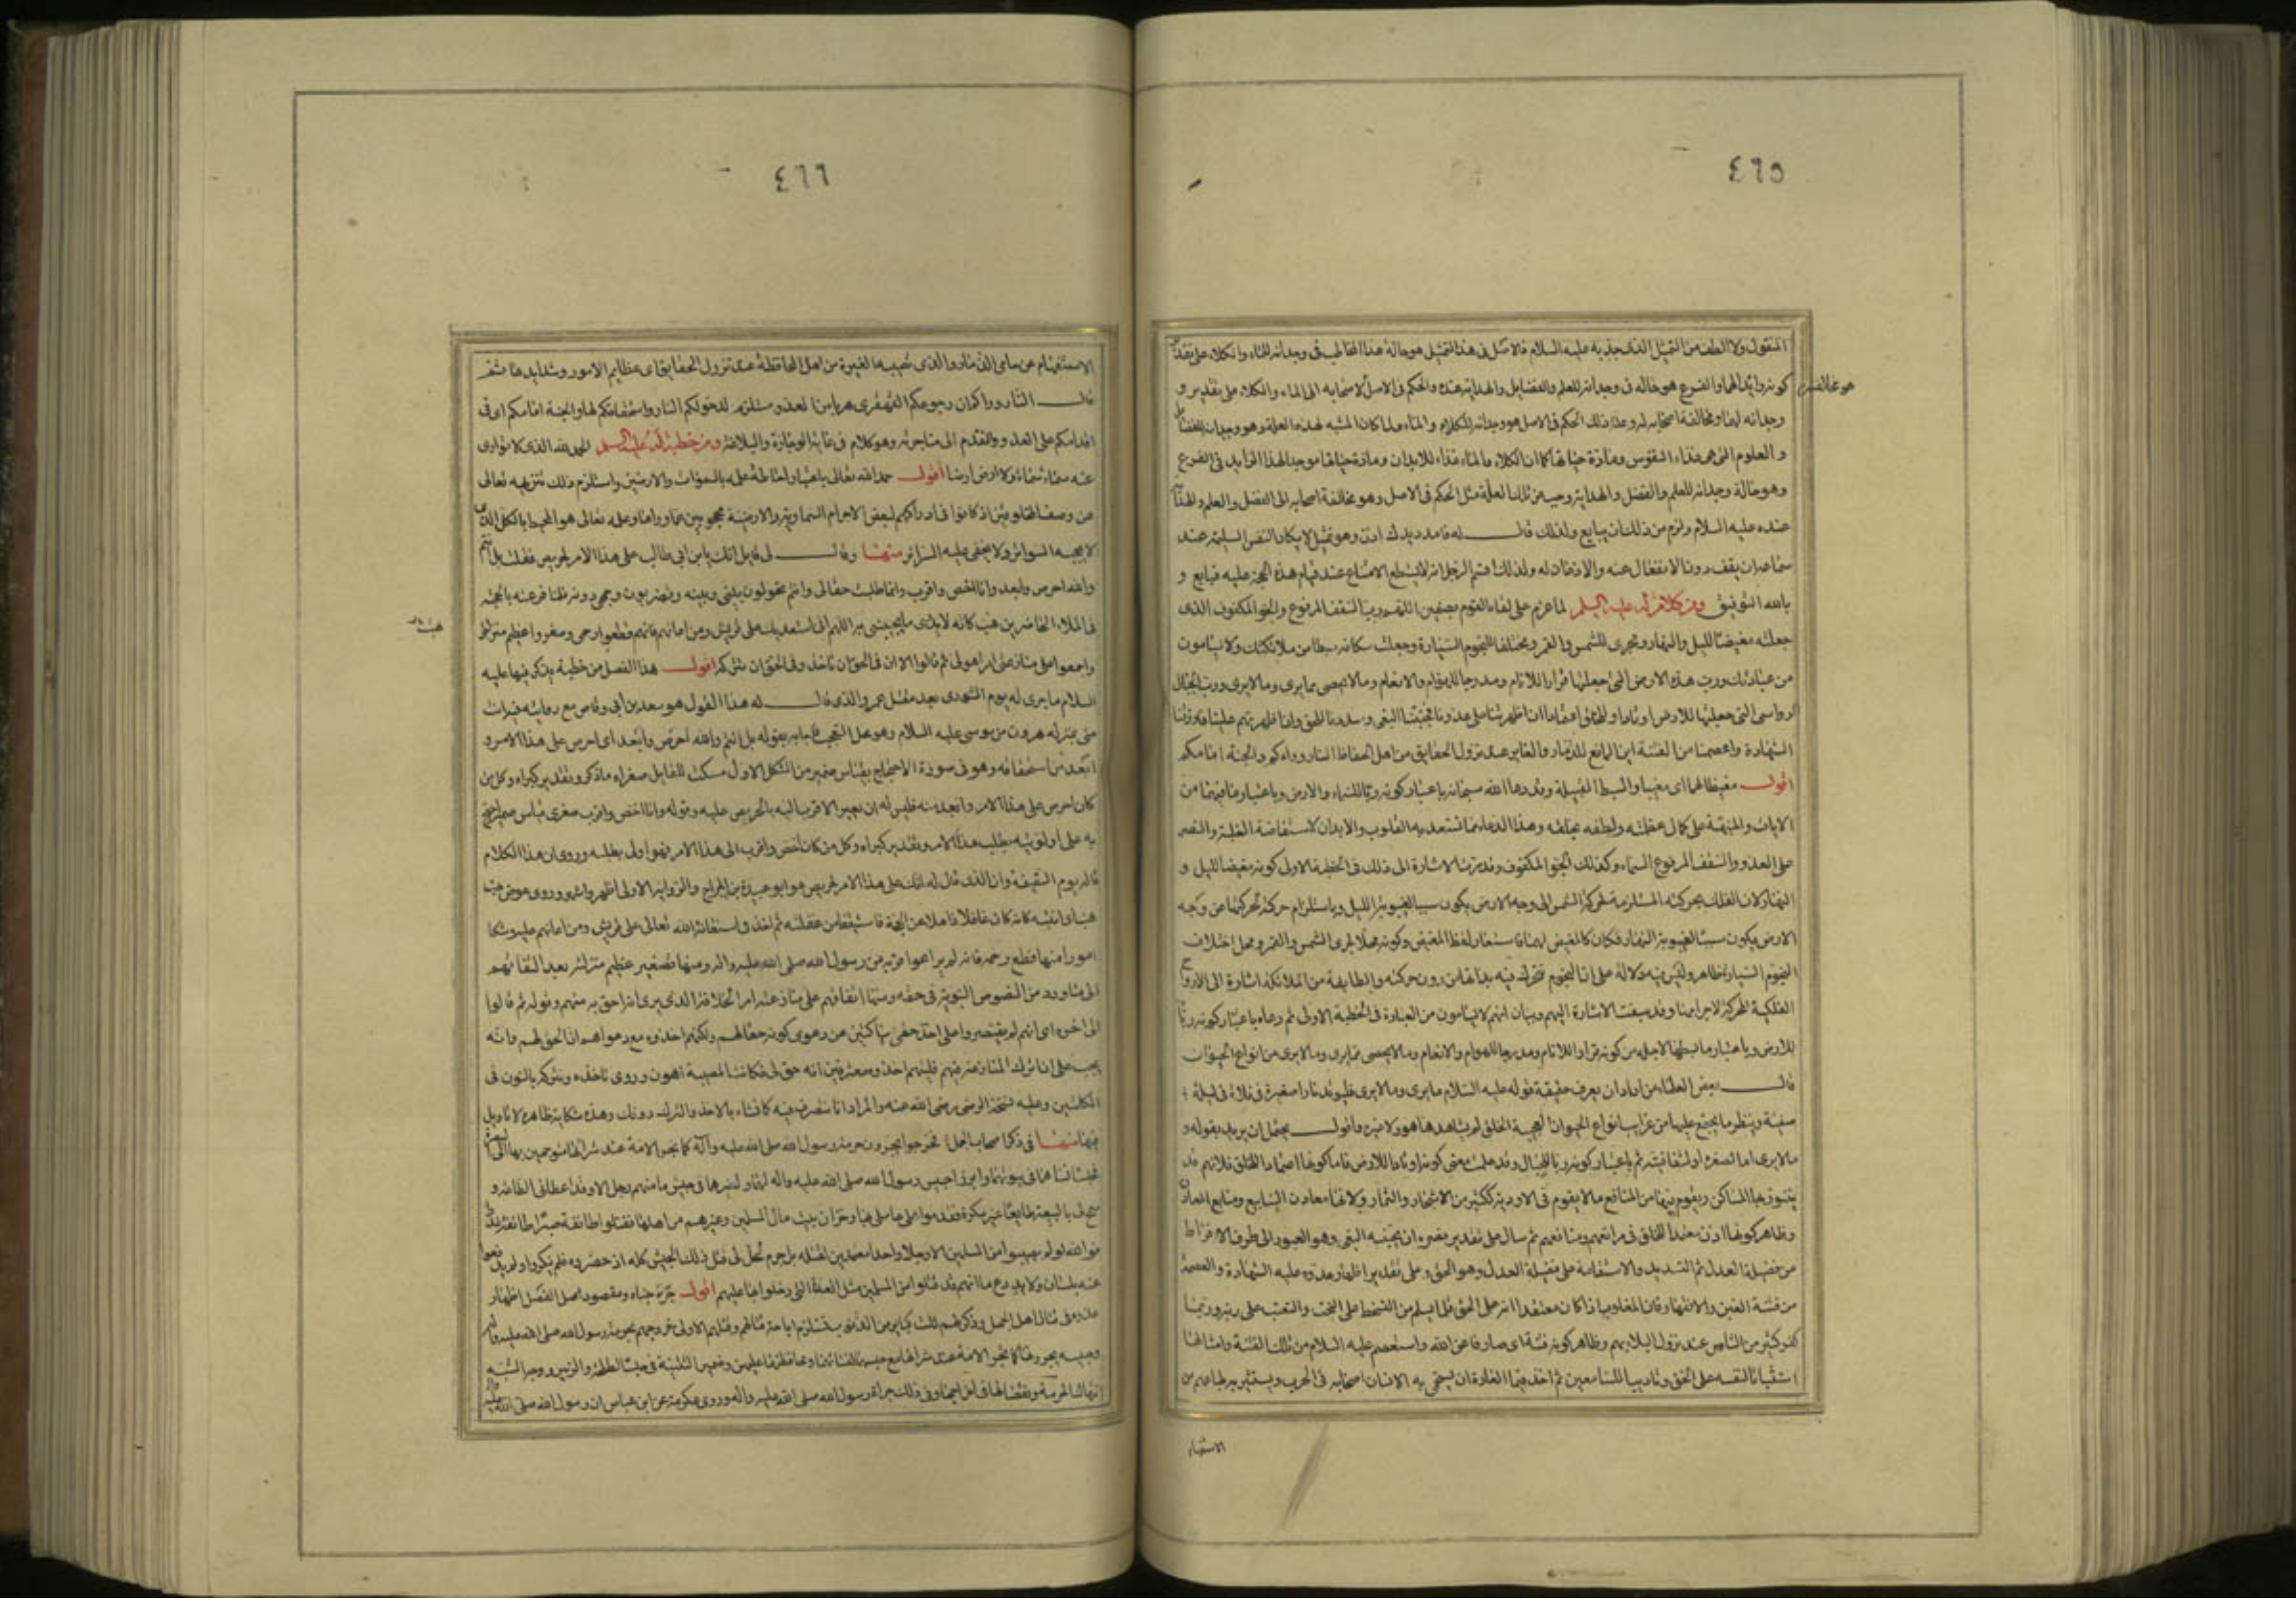 ٤٦٥
المنقول ولا الطف من التمثيل الذى جذبه به عليه السلام فالاصل فى هذا التمثيل هو حالة هذا المخاطب فى وجدانه للماء والكلاء على تقدير
كونه رايدا لهما والفرع هو حاله فى وجدانه للعلم والفضايل والهداية عنده والحكم فى الاصل لاصحابه الى الماء والكلاء على تقدير
وجدانه لهما ومخالفة اصحابه له وعلة ذلك الحكم فى الاصل هو وجدانه للكلاء والماء ولما كان المشبه لهذه العلة وهو وجدانه للفضايل
و العلوم التى هى غذاء النفوس ومادة حياتها كما ان الكلاء والماء غذاء للابدان ومادة حياتها موجدا لهذا الرايد فى الفرع
وهو حالة وجدانه للعلم والفضل والهداية وجب عن تلك العلة مثل الحكم فى الاصل وهو مخالفة اصحابه الى الفضل والعلم والهداية
عنده عليه السلام ولزم من ذلك ان يبايع ولذلك قال له فامدد يدك اذن وهو تمثيل لا يكاد النفس السليمة عند
سماعه ان يقف دون الانفعال عنه والاذعان له ولذلك اقسم الرجل انه لم يستطع الامتناع عند قيام هذه الحجة عليه فبايع و
بالله التوفيق ومن كلام له عليه السلم لما عزم على لقاء القوم بصفين اللهم رب السقف المرفوع والجو المكفوف الذى
جعلته مغيضا لليل والنهار ومجرى للشمس والقمر ومختلفا للنجوم السيارة وجعلت سكانه سبطا من ملائكتك ولا يسامون
من عبادتك ورب هذه الارض التى جعلتها قرارا للانام ومدرجا للهوام والانعام ومالا يحصى مما يرى ومالا يرى ورب الجبال
الرواسى التى جعلتها للارض اوتادا وللخلق اعتمادا ان اظهرتنا على عدونا فجنبنا البغى وسددنا للحق وان اظهرتهم علينا فارزقنا
الشهادة واعصمنا من الفتنة اين المانع للذمار والغاير عند نزول الحقايق من اهل الحفاظ النار وراءكم والجنة امامكم
اقول مغيضا لهما اى مغيبا والسبط القبيلة وقد دعا الله سبحانه باعتبار كونه ربا للسماء والارض وباعتبار ما فيهما من
الايات والمنبهة على كمال عظمته ولطفه بخلقه وهذا الدعاء مما تستعد به القلوب والابدان لاستفاضة الغلبة والنصر
على العدو والسقف المرفوع السماء وكذلك الجو المكفوف وقد مرت الاشارة الى ذلك فى الخطبة الاولى كونه مغيضا لليل و
النهار لان الفلك بحركته المستلزمة لحركة الشمس الى وجه الارض يكون سببا لغيبوبة الليل وباستلزام حركته لحركتها عن وجه
الارض يكون سببا لغيبوبة النهار فكان كالمغيض لهما فاستعار لفظ المغيض وكونه محلا لمجرى الشمس والقمر ومحل اختلاف
النجوم السيارة ظاهر وليس فيه دلالة على ان النجوم تتحرك فيه بذاتها من دون حركته والطايفة من الملائكة اشارة الى الارواح
الفلكية المحركة لاجرامها وقد سبقت الاشارة اليهم وبيان انهم لا يسامون من العبادة فى الخطبة الاولى ثم دعاه باعتبار كونه ربا
للارض وباعتبار ما بسطها لاجله من كونه قرارا للانام ومدرجا للهوام والانعام ومالا يحصى مما يرى ومالا يرى من انواع الحيوان
قال بعض العلماء من اراد ان يعرف حقيقة قوله عليه السلام ما يرى ومالا يرى فليوقد نارا صغيرة فى فلاة فى ليلة
صيفية وينظر ما يجتمع عليها من غرايب انواع الحيوان العجيبة الخلق لم يشاهدها هو ولا غيره واقول يحتمل ان يريد بقوله و
مالا يرى اما لصغره او لشفافيته ثم باعتبار كونه ربا للجبال وقد علمت معنى كونها اوتادا للارض فاما كونها اعتمادا للخلق فلانهم قد
وظاهر كونها اذن معتمدا للخلق فى مرافقهم ومنافعهم ثم سال على تقدير نصره ان يجنبه البغى وهو العبور الى طرف الافراط
من فضيلة العدل ثم التسديد والاستقامة على فضيلة العدل وهو الحق وعلى تقدير اظهار عدوه عليه الشهادة والعصمة
من فتنة الغبن والانقهار فان المغلوب اذا كان معتقدا انه على الحق قلما يسلم من السخط على البخت والتعتب على ربه وربما
كفر كثير من الناس عند نزول البلاء بهم وظاهر كونه فتنة اى صارفا عن الله واستعصم عليه السلام من تلك الفتنة وامثالها
استثباتا لنفسه على الحق وتاديبا للسامعين ثم اخذ فيما العادة ان يحمى به الانسان اصحابه فى الحرب
٤٦٦
الاستفهام عن حامى الذمار والذى تصيبه الغيرة من اهل المحافظة عند نزول الحقايق اى عظايم الامور وشدايدها ثم
قال النار وراكم ان رجوعكم القهقرى هربا من العدو مستلزم لدخولكم النار واستحقاقكم لها والجنة امامكم اى فى
اقدامكم على العدو والتقدم الى مناجزته وهو كلام فى غاية الوجازة والبلاغة ومن خطبة له عليه السلم الحمد لله الذى لا توارى
عنه سماء سماء ولا ارض ارضا اقول حمد الله تعالى باعتبار احاطة علمه بالسموات والارضين واستلزم ذلك تنزيهه تعالى
عن وصف المخلوقين اذ كانوا فى ادراكهم لبعض الاجرام السماوية والارضية محجوبين عما وراها وعلمه تعالى هو المحيط بالكل الذى
لا يحجبه السواتر ولا يخفى عليه السرائر منها وقال لى قايل انك يابن ابى طالب على هذا الامر لحريص فقلت بل انتم
والله احرص وابعد وانا اخص واقرب وانما طلبت حقا لى وانتم تحولون بينى وبينه وتضربون وجهى دونه فلما قرعته بالحجة
فى الملاء الحاضرين هب كانه لا يدرى ما يجيبنى به اللهم انى استعديك على قريش ومن اعانهم فانهم قطعوا رحمى وصغروا عظيم منزلتى
واجمعوا على منازعتى امرا هو لى ثم قالوا الا ان فى الحق ان تاخذه وفى الحق ان تتركه اقول هذا الفصل من خطبة يذكر فيها عليه
السلام ما جرى له يوم الشورى بعد مقتل عمر والذى قال له هذا القول هو سعد بن ابى وقاص مع روايته فيه انت
منى بمنزلة هرون من موسى عليه السلام وهو محل التعجب فاجابه بقوله بل انتم والله احرص وابعد اى احرص على هذا الامر و
ابعد من استحقاقه وهو فى صورة الاحتجاج بقياس ضمير من الشكل الاول مسكت للقايل صغراه ما ذكر وتقدير كبراه وكل من
كان احرص على هذا الامر وابعد منه فليس له ان يعير الاقرب اليه بالحرص عليه وقوله وانا اخص واقرب صغرى قياس ضمير احتج
به على اولويته بطلب هذا الامر وتقدير كبراه وكل من كان اخص واقرب الى هذا الامر فهو اولى بطلبه وروى ان هذا الكلام
قاله يوم السقيفة وان الذى قال له انك على هذا الامر لحريص هو ابو عبيدة بن الجراح والرواية الاولى اظهر واشهر وروى عوض هب
امورا منها قطع رحمه فانهم لم يراعوا قربه من رسول الله صلى الله عليه واله ومنها تصغير عظيم منزلته بعدم التفاتهم
الى ما ورد من النصوص النبوية فى حقه ومنها اتفاقهم على منازعته امر الخلافة الذى يرى انه احق به منهم وقوله ثم قالوا
الى اخره اى انهم لم يقتصروا على اخذ حقى ساكتين عن دعوى كونه حقا لهم ولكنهم اخذوه مع دعواهم ان الحق لهم وانه
يجب على ان اترك المنازعة فيه فليتهم اخذوه معترفين انه حق لى فكانت المصيبة اهون وروى ناخذه ونتركه بالنون فى
الكلمتين وعليه نسخة الرضى رضى الله عنه والمراد انا نتصرف فيه كما نشاء بالاخذ والترك دونك وهذه شكاية ظاهرة لا تاويل
فيها منها فى ذكر اصحاب الجمل فخرجوا يجرون حرمة رسول الله صلى الله عليه وآله كما تجر الامة عند شرائها متوجهين بها الى البصرة
فحبسا نساءهما فى بيوتهما وابرزا حبيس رسول الله صلى الله عليه واله لهما ولغيرهما فى جيش ما منهم رجل الا وقد اعطانى الطاعة و
سمح لى بالبيعة طايعا غير مكره فقدموا على عاملى بها وخزان بيت مال المسلمين وغيرهم من اهلها فقتلوا طائفة صبرا وطائفة غدرا
فوالله لو لم يصيبوا من المسلمين الا رجلا واحدا معتمدين لقتله بلا جرم لحل لى قتل ذلك الجيش كله اذ حضروه فلم ينكروا ولم يدفعوا
عنه بلسان ولا يد دع ما انهم قد قتلوا من المسلمين مثل العدة التى دخلوا بها عليهم اقول ومقصود هذا الفصل اظهار
عذره فى قتال اهل الجمل وذكر لهم ثلث كباير
الاستفهام